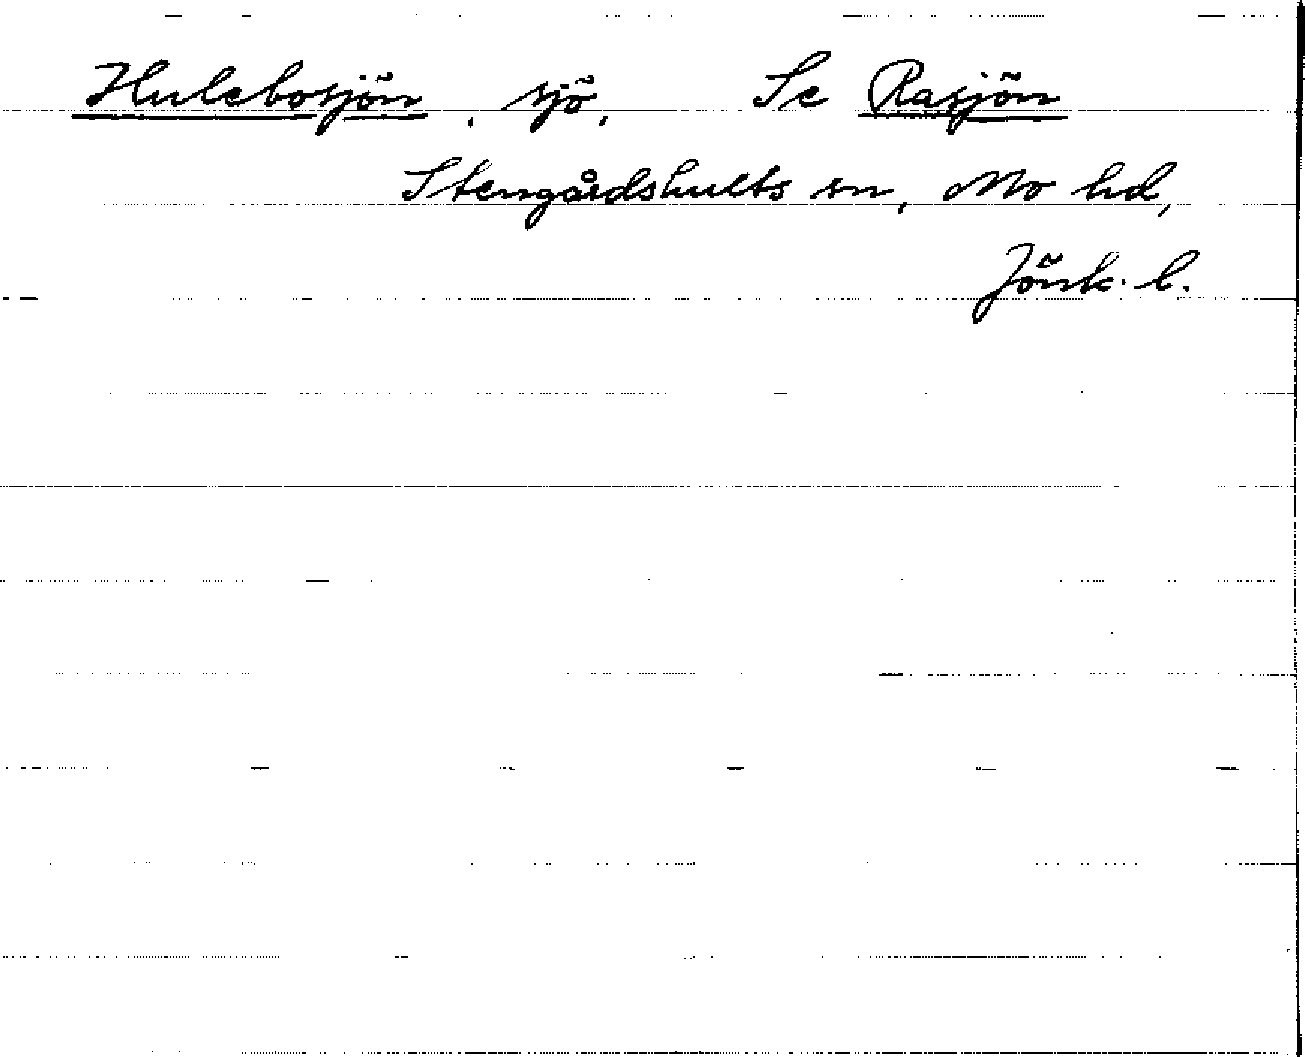 Hulebosjön, sjö, Se Rasjön
Stengårdshults sn, Mo hd,
Jönk. l.